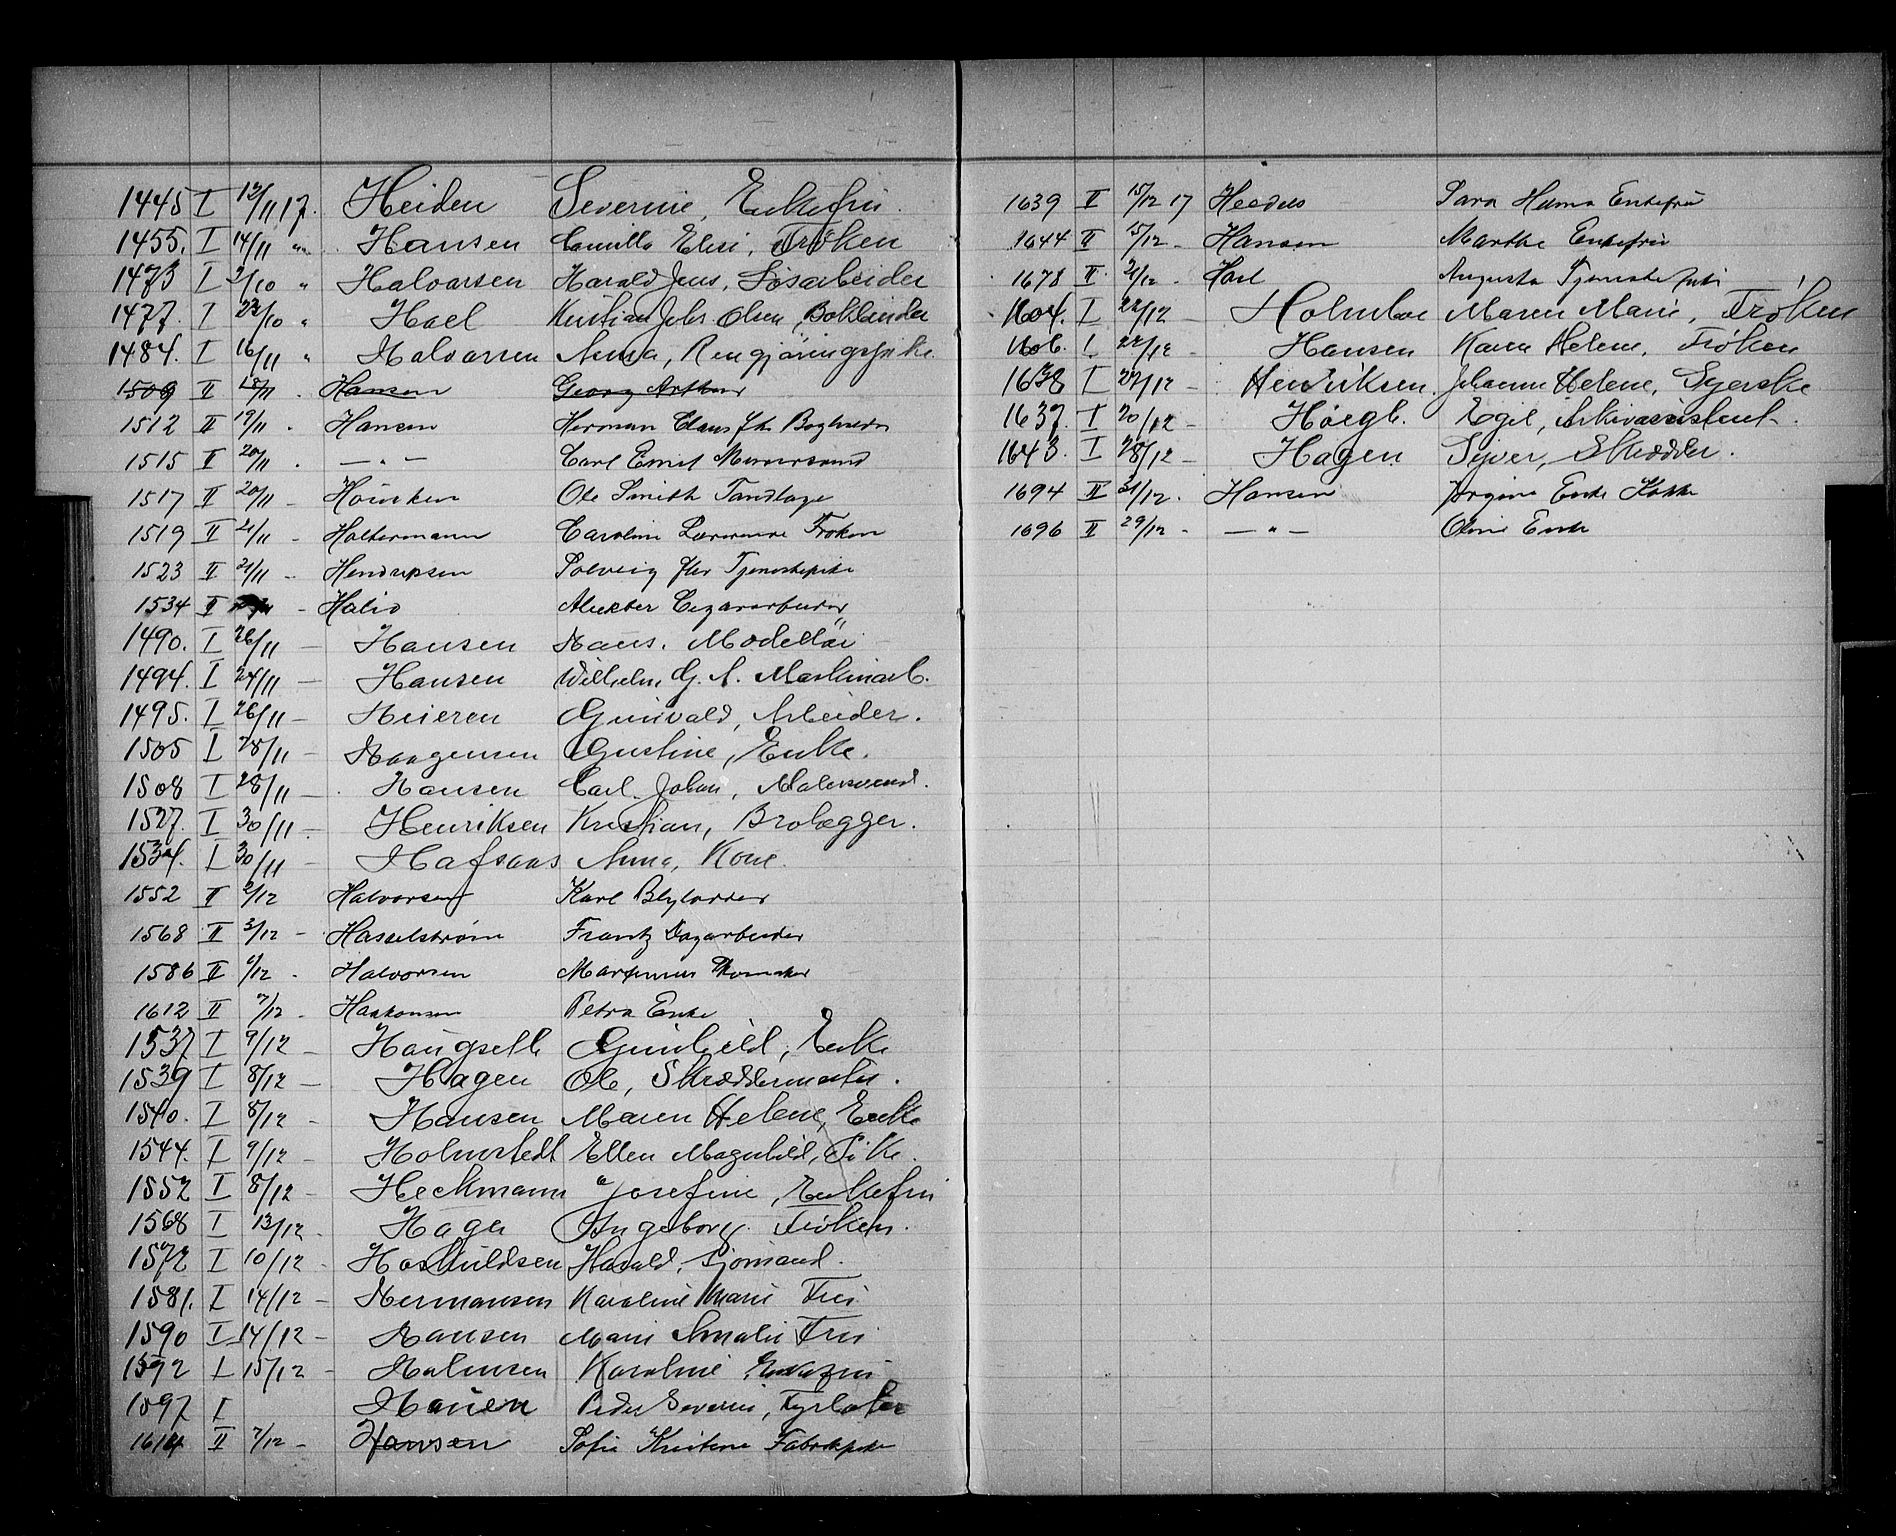 1445 I 12/11 17. Heiden Severine, Enkefru.
1455. I 14/11 " Hansen Camilla Elisi, Frøken
1473 I 2/10 " Halvorsen Harald Jens, Løsarbeider
1477. I 22/10 " Hoel Kristian Johs Olsen, Bokbinder
1484. I 16/11 " Halvorsen Anna, Rengjøringspike
1509 II 18/11 . Hansen Georg Arthur
1512 II 19/11 . Hansen Herman Claus
1515 II 20/11 . — " — Carl Emil Murersvend
1517 II 20/11 - Ole Smith Tandlæge
1519 II 21/11 - Holtermann Caroline Lærerinde Frøken
1523 II 21/11 - Hendrksen Solveig Tjenestepike
1534 II - Cigararbeider
1490. I 26/11 — Hansen Hans. Modellør
1494. I 24/11 — Hansen Wilhelm G. A. Maskinarb.
1495. I 26/11 — Heieren Gunvald, Arbeider.
1505 I 28/11 — Haagensen Gustine, Enke.
1508 I 28/11 — Hansen Carl Johan, Malersvend.
1527. I 30/11 - Henriksen Kristian, Brolægger.
1534. I 30/11 - Hafsaas Anna, Kone.
1552 II 2/12 Halvorsen Karl
1568 II 3/12 - Hasselstrøm Frantz Dagarbeider
1586 II 6/12 - Halvorsen Martinus
1612 II 7/12 - Haakonsen Petra Enke
1537 I 9/12 — Haugseth Gunhild, Enke
1539 I 8/12 — Hagen Ole, Skræddermester.
1540. I 8/12 - Hansen Maren Helene, Enke
1544. I 9/12 - Holmstedt Ellen Magnhild, Pike.
1552 I 8/12 - Heckmann Josefine, Enkefru
1568 I 13/12 - Hagen Ingeborg. Frøken.
1572 I 10/12 - Hoskuldsen Harald, Sjømand.
1581. I 14/12 - Hermansen Karoline Marie Fru
1590 I 14/12 - Hansen Marie Amalie Fru
1592 I 15/12 - Halmsen Karoline Enkefru
1597 I Peder Severin, Fyrbøter
1614 II 7/12 - Hansen Sofie Kristine Fabrikpike
1639 II 15/12 17 Sara Enkefru
1644 II 15/12 - Hansen Marthe Enkefru
1678 II 21/12 - Hoel Augusta Tjenestepike
1604. I 22/12 — Holmboe Maren Marie, Frøken
1606. I 22/12 - Hansen Karen Helene, Frøken
1638 I 27/12 - Henriksen Johanne Helene, Syerske
1637. I 20/12 - Høegh. Egil, Arkivassistent.
1643. I 28/12 - Hagen Syver, Skrædder.
1694 II 31/12. Hansen Jørgine Enke Kokke
1696 II 29/12 - — " — Oline Enke